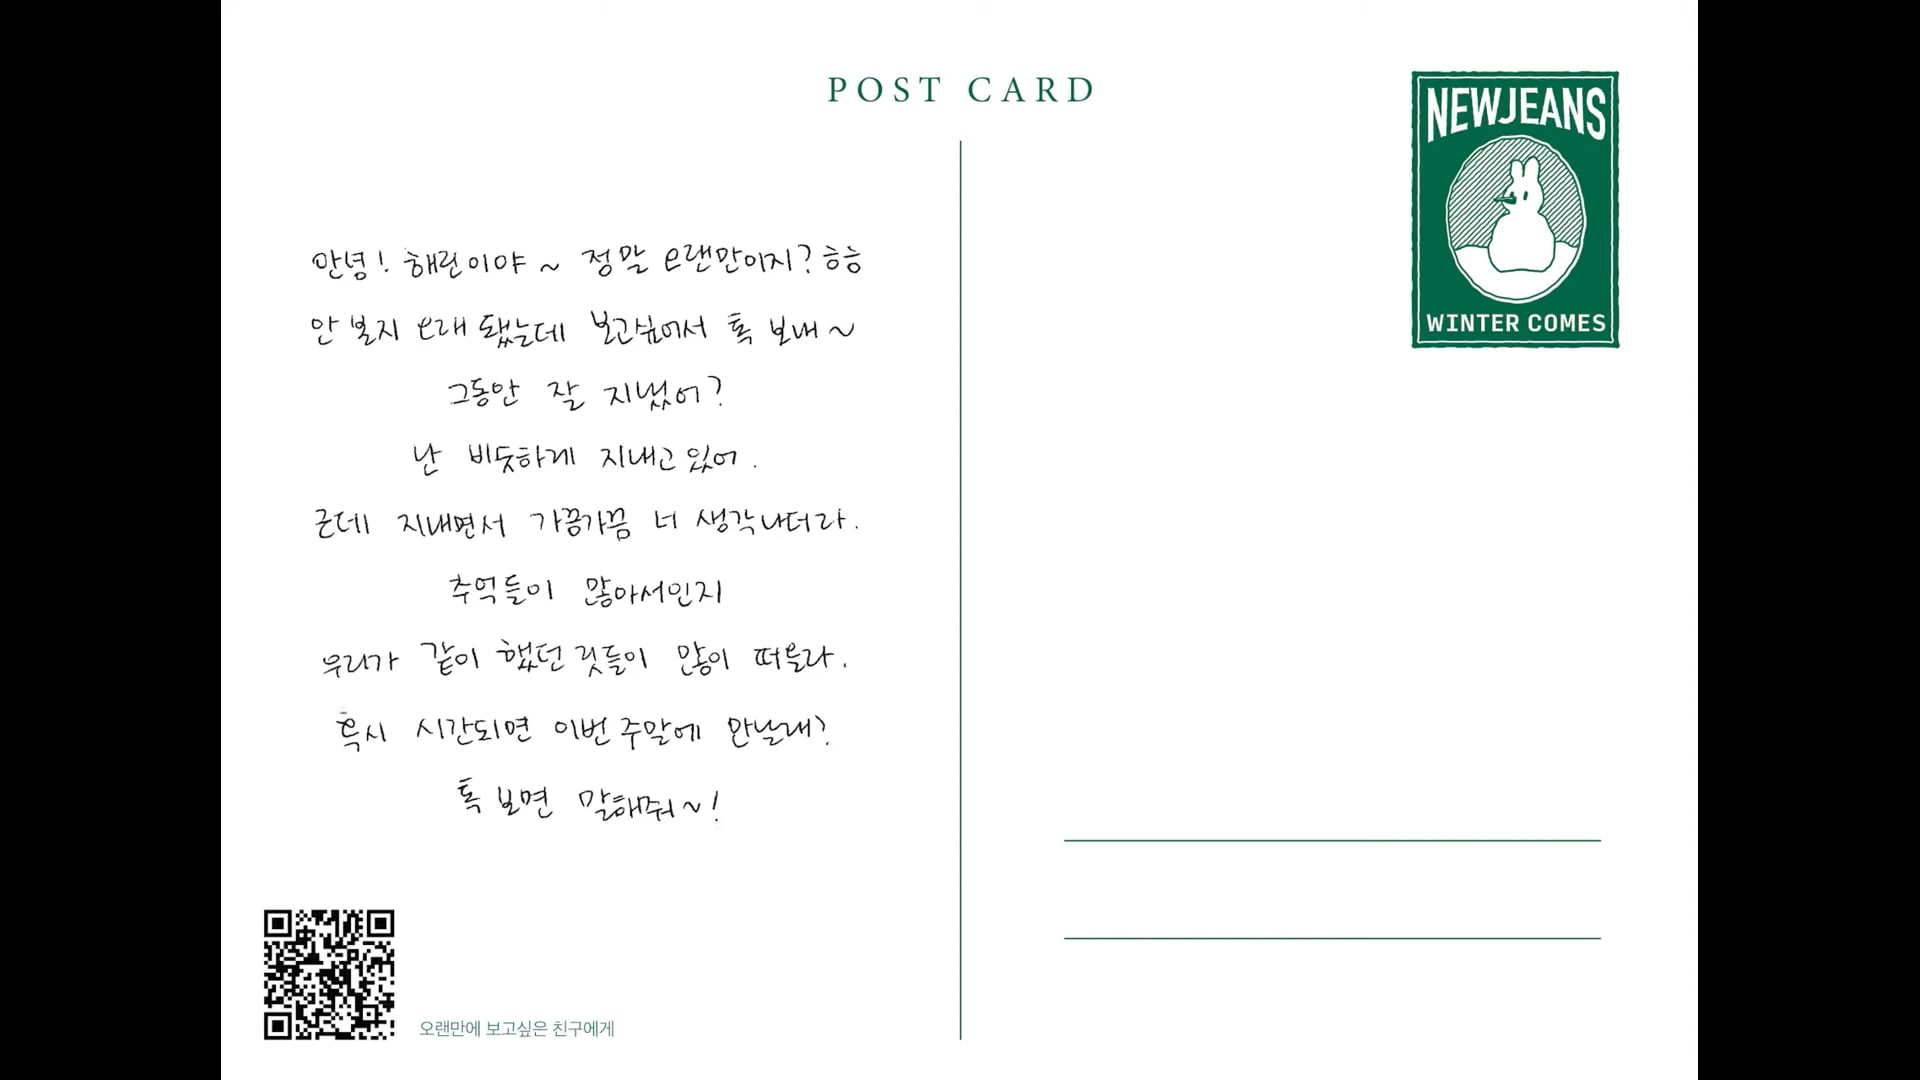 POST CARD
NEWJEANS
WINTER COMES
안녕! 해린이야~ 정말 오랜만이지? ㅎㅎ
안 본지 오래 됐는데 보고싶어서 톡 보내~
그동안 잘 지냈어?
난 비슷하게 지내고 있어.
근데 지내면서 가끔가끔 너 생각나더라.
추억들이 많아서인지
우리가 같이 했던 것들이 많이 떠올라.
혹시 시간되면 이번 주말에 만날래?
톡 보면 말해줘~!
오랜만에 보고싶은 친구에게